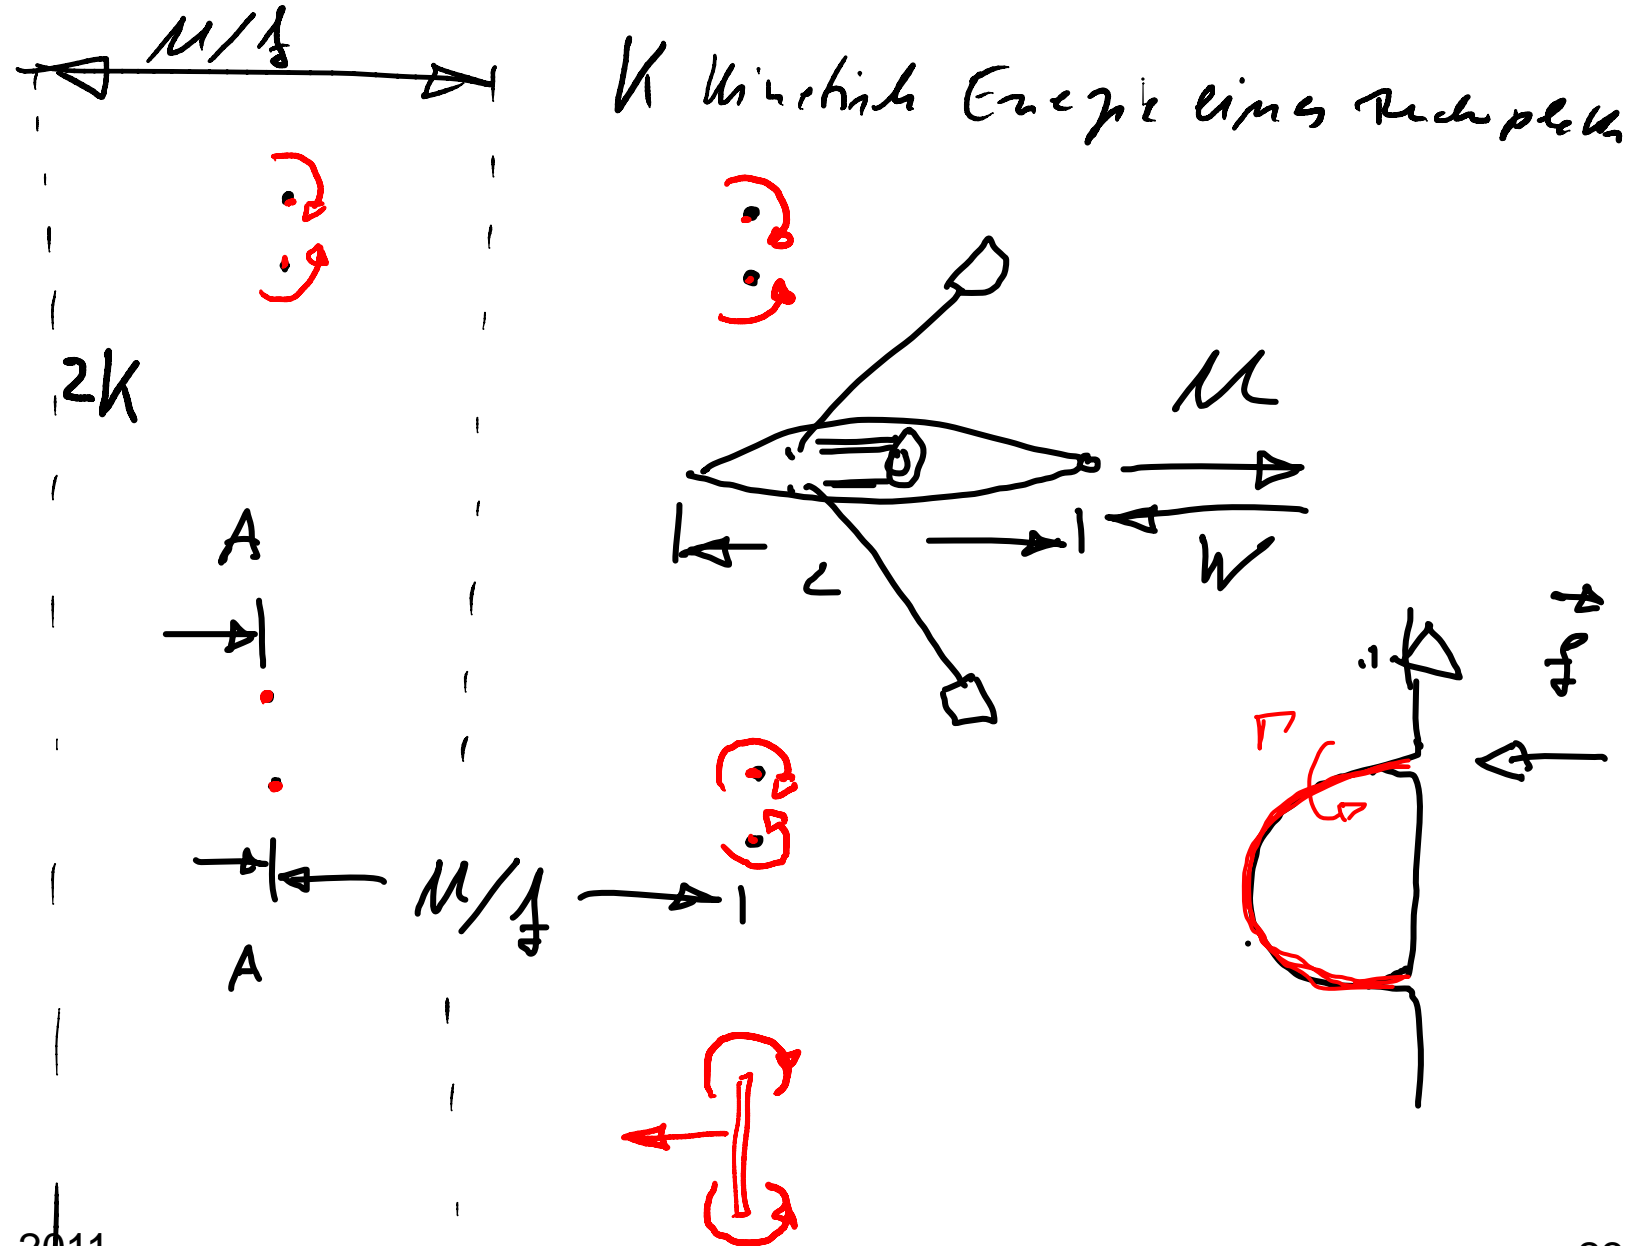 U/f
K kinetisch Energie eines
2K
U
A
L
W
f
Γ
U/f
A
2011